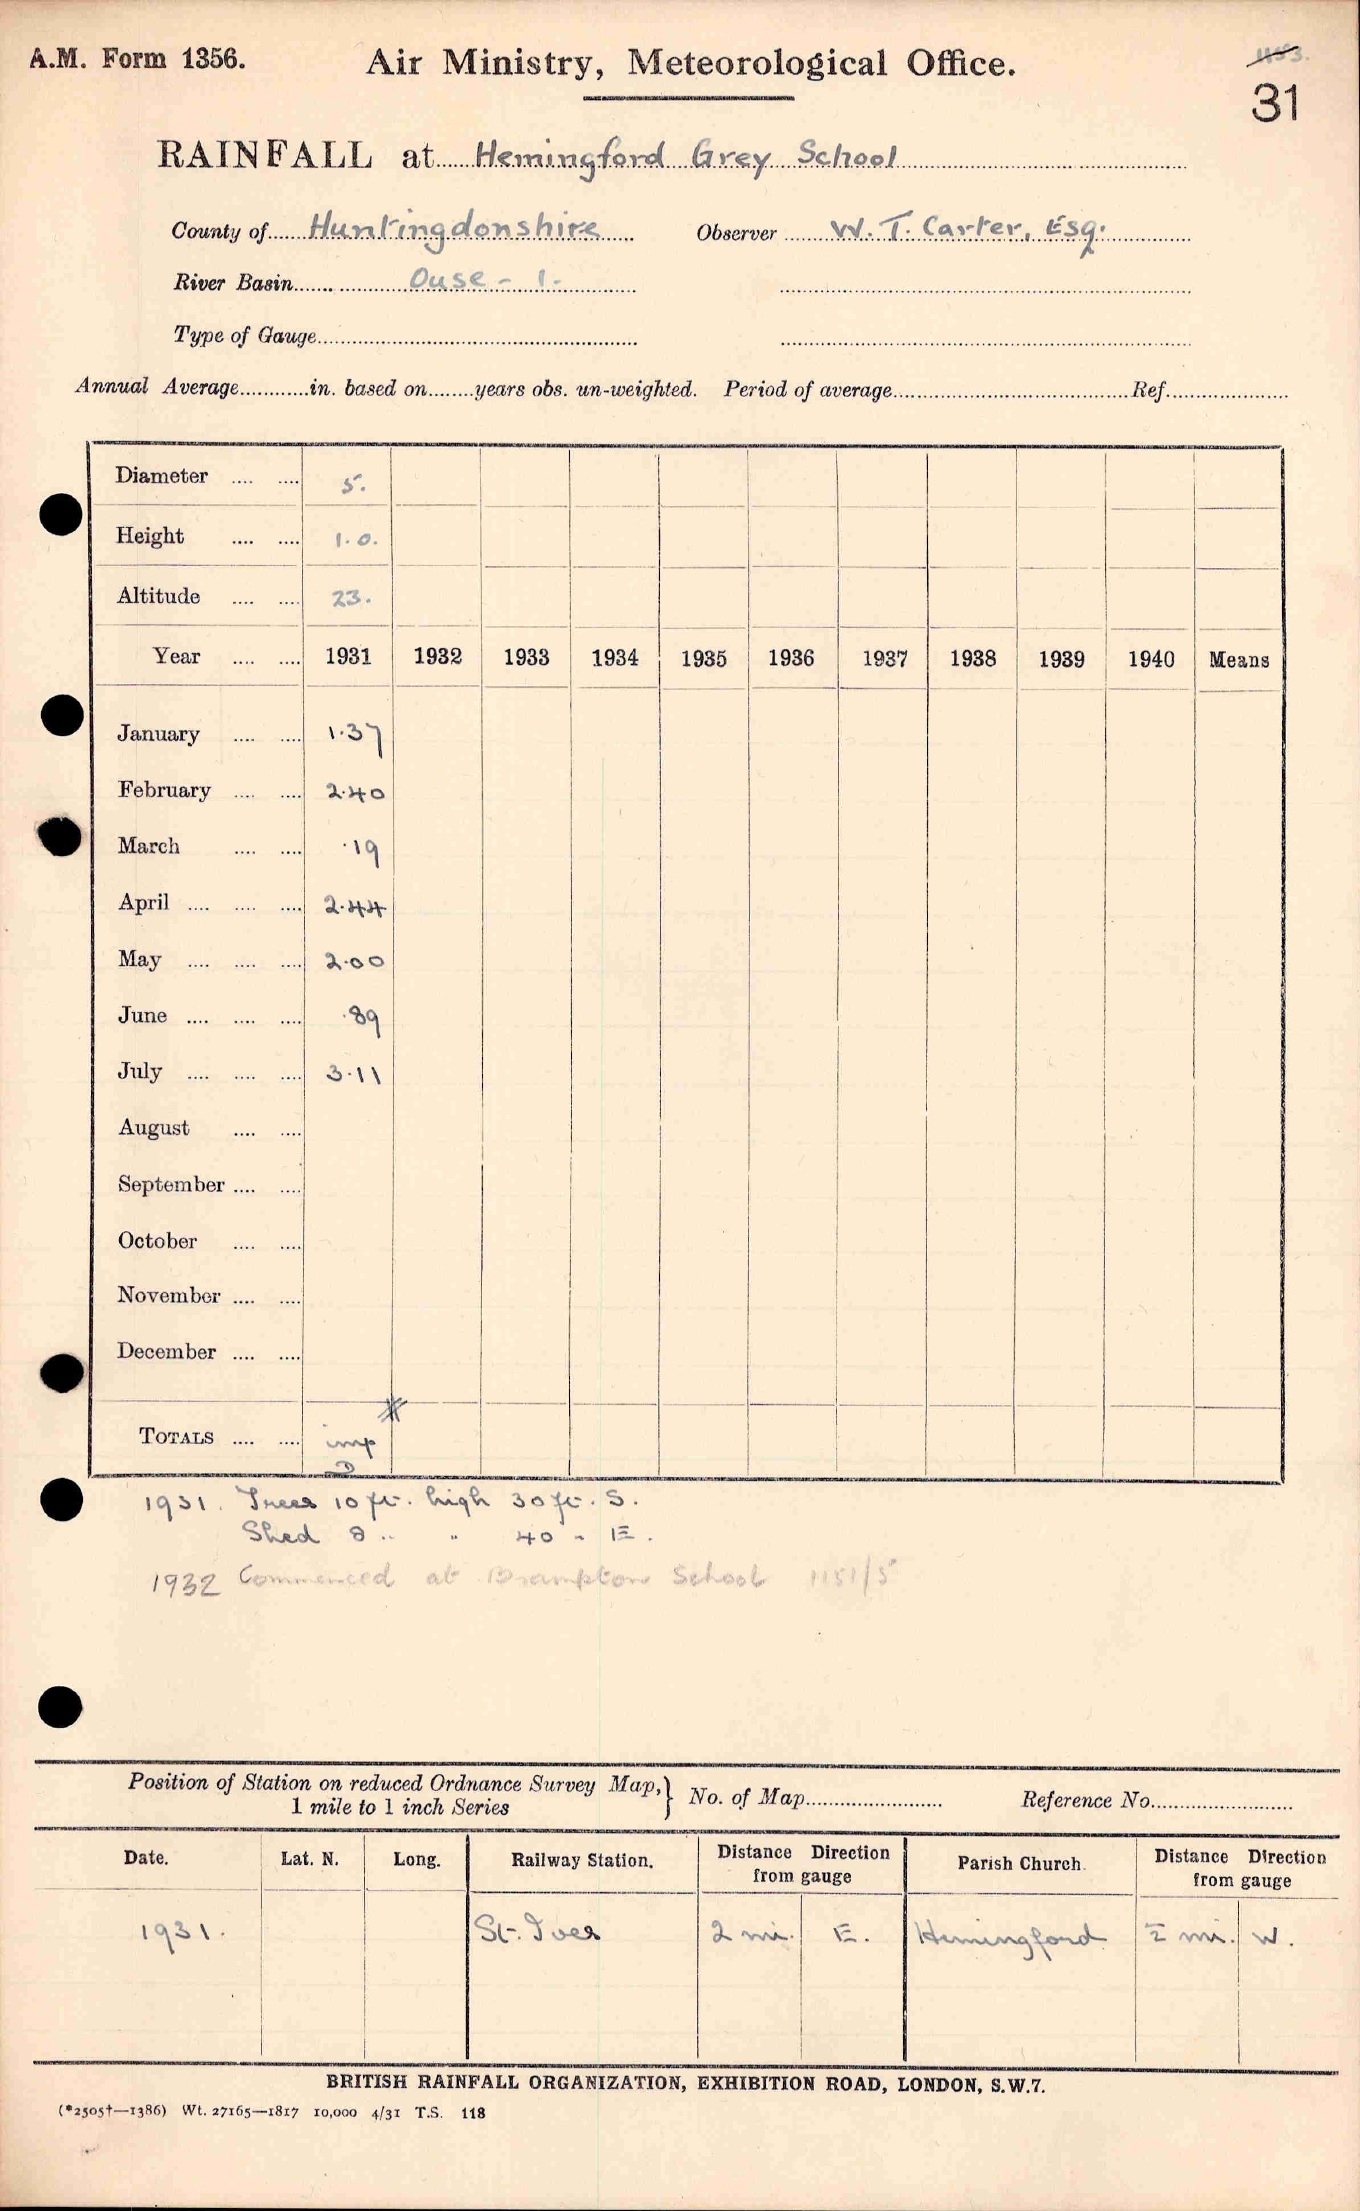 A.M. Form 1356.
Air Ministry, Meteorological Office.
1153.
31
RAINFALL at Hemingford Grey School
County of Huntingdonshire Observer W. T. Carter, Esq.
River Basin Ouse - 1.
Type of Gauge
Annual Average in. based on years obs. un-weighted. Period of average Ref.
Diameter 5.
Height 1.0.
Altitude 23.
Year 1931 1932 1933 1934 1935 1936 1937 1938 1939 1940 Means
January 1.37
February 2.40
March .19
April 2.44
May 2.00
June .89
July 3.11
August
September
October
November
December
TOTALS imp
1931. Trees 10 ft. high 30 ft. S.
Shed 8 " " 40 " E.
1932 Commenced at Brampton School 1151/5
Position of Station on reduced Ordnance Survey Map, } No. of Map Reference No.
1 mile to 1 inch Series
Date. Lat. N. Long. Railway Station. Distance Direction from gauge Parish Church. Distance Direction from gauge
1931. St. Ives 2 mi. E. Hemingford ½ mi. W.
BRITISH RAINFALL ORGANIZATION, EXHIBITION ROAD, LONDON, S.W.7.
(*2505†—1386) Wt. 27165—1817 10,000 4/31 T.S. 118